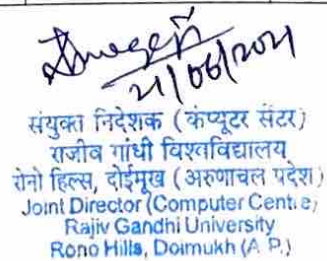 21/06/2021
संयुक्त निदेशक (कंप्यूटर सेंटर)
राजीव गांधी विश्वविद्यालय
रोनो हिल्स, दोईमुख (अरुणाचल प्रदेश)
Joint Director (Computer Centre)
Rajiv Gandhi University
Rono Hills, Doimukh (A.P.)